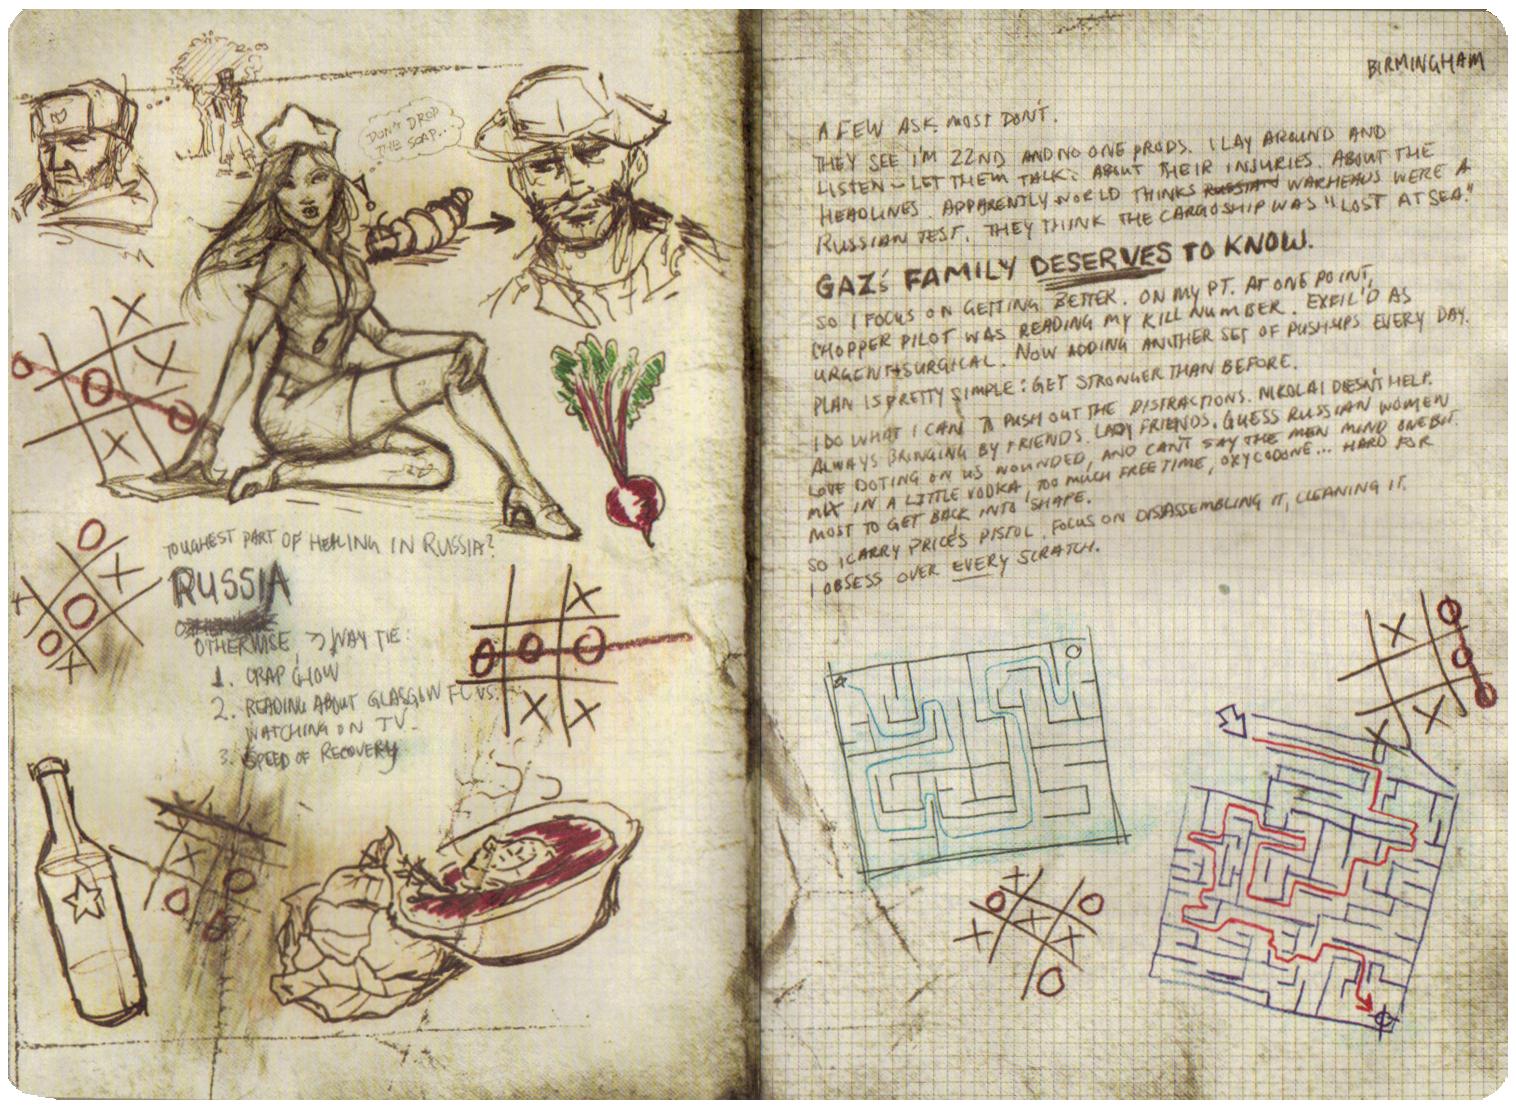 DON'T DROP
THE SOAP...
TOUGHEST PART OF HEALING IN RUSSIA?
RUSSIA
OTHERWISE, 3 WAY TIE:
1. CRAP CHOW
2. READING ABOUT GLASGOW FC VS.
WATCHING ON TV.
3. SPEED OF RECOVERY
BIRMINGHAM
A FEW ASK. MOST DON'T.
THEY SEE I'M 22ND AND NO ONE PRODS. I LAY AROUND AND
LISTEN - LET THEM TALK: ABOUT THEIR INJURIES. ABOUT THE
HEADLINES. APPARENTLY WORLD THINKS RUSSIAN WARHEADS WERE A
RUSSIAN TEST. THEY THINK THE CARGOSHIP WAS "LOST AT SEA."
GAZ'S FAMILY DESERVES TO KNOW.
SO I FOCUS ON GETTING BETTER. ON MY PT. AT ONE POINT,
CHOPPER PILOT WAS READING MY KILL NUMBER. EXFIL'D AS
URGENT-SURGICAL. NOW ADDING ANOTHER SET OF PUSHUPS EVERY DAY.
PLAN IS PRETTY SIMPLE: GET STRONGER THAN BEFORE.
I DO WHAT I CAN TO PUSH OUT THE DISTRACTIONS. NIKOLAI DOESN'T HELP.
ALWAYS BRINGING BY FRIENDS. LADY FRIENDS. GUESS RUSSIAN WOMEN
LOVE DOTING ON US WOUNDED, AND CAN'T SAY THE MEN MIND ONE BIT.
MIX IN A LITTLE VODKA, TOO MUCH FREE TIME, OXYCODONE... HARD FOR
MOST TO GET BACK INTO SHAPE.
SO I CARRY PRICE'S PISTOL. FOCUS ON DISASSEMBLING IT, CLEANING IT.
I OBSESS OVER EVERY SCRATCH.